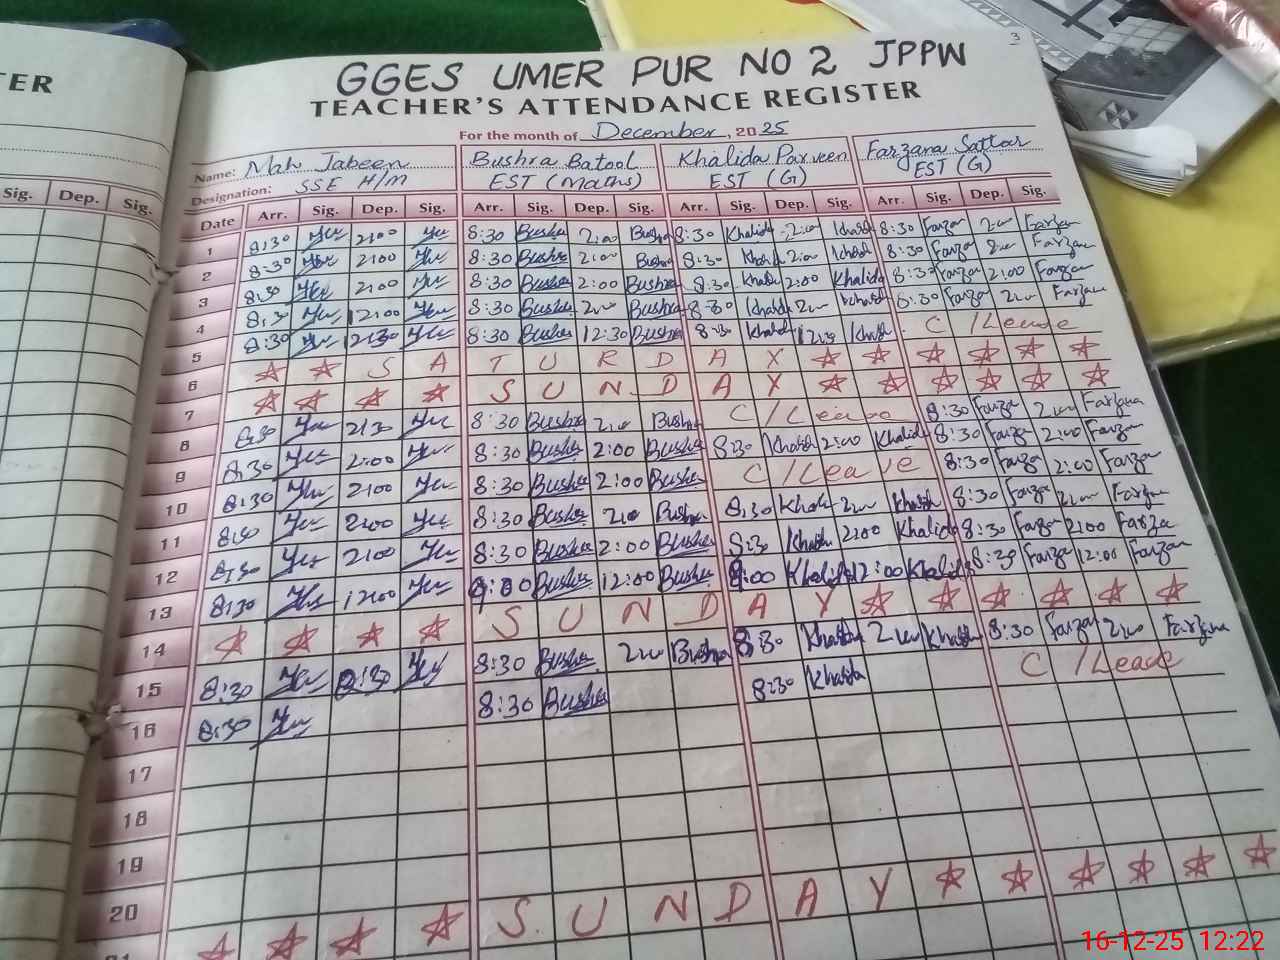 TER
3
GGES UMER PUR NO 2 JPPW
TEACHER'S ATTENDANCE REGISTER
For the month of December, 2025
Name: Mah Jabeen Bushra Batool Khalida Parveen Farzana Sattar
Designation: SSE H/M EST (Maths) EST (G) EST (G)
Sig. Dep. Sig. Date Arr. Sig. Dep. Sig. Arr. Sig. Dep. Sig. Arr. Sig. Dep. Sig. Arr. Sig. Dep. Sig.
1 8:30 2:00 8:30 Bushra 2:00 Bushra 8:30 Khalida 2:00 8:30 Farzan 2:00 Farzan
2 8:30 2:00 8:30 Bushra 2:00 Bushra 8:30 Khalida 2:00 Khalida 8:30 Farzan 2:00 Farzan
3 8:30 2:00 8:30 Bushra 2:00 Bushra 8:30 Khalida 2:00 Khalida 8:30 Farzan 2:00 Farzan
4 8:30 2:00 8:30 Bushra 2:00 Bushra 8:30 Khalida 2:00 Khalida 8:30 Farzan 2:00 Farzan
5 8:30 12:30 8:30 Bushra 12:30 Bushra 8:30 Khalida 12:30 Khalida C/Leave
6 S A T U R D A Y
7 S U N D A Y
8 8:30 2:30 8:30 Bushra 2:00 Bushra C/Leave 8:30 Farzan 2:00 Farzana
9 8:30 2:00 8:30 Bushra 2:00 Bushra 8:30 Khalida 2:00 Khalida 8:30 Farzan 2:00 Farzan
10 8:30 2:00 8:30 Bushra 2:00 Bushra C/Leave 8:30 Farzan 2:00 Farzan
11 8:30 2:00 8:30 Bushra 2:00 Bushra 8:30 Khalida 2:00 Khalida 8:30 Farzan 2:00 Farzan
12 8:30 2:00 8:30 Bushra 2:00 Bushra 8:30 Khalida 2:00 Khalida 8:30 Farzan 2:00 Farzan
13 8:30 12:00 9:00 Bushra 12:00 Bushra 9:00 Khalida 12:00 Khalida 8:30 Farzan 12:00 Farzan
14 S U N D A Y
15 8:30 2:30 8:30 Bushra 2:00 Bushra 8:30 Khalida 2:00 Khalida 8:30 Farzan 2:00 Farzana
16 8:30 8:30 Bushra 8:30 Khalida C/Leave
17
18
19
20
21 S U N D A Y
16-12-25 12:22